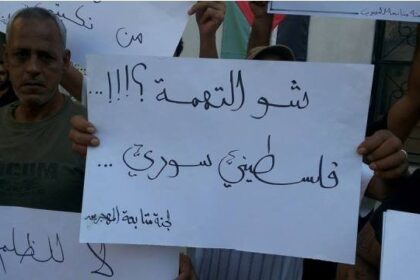 من
شو التهمة ؟!!! ...
فلسطيني سوري ...
لجنة متابعة المهجرين
لا للظلم